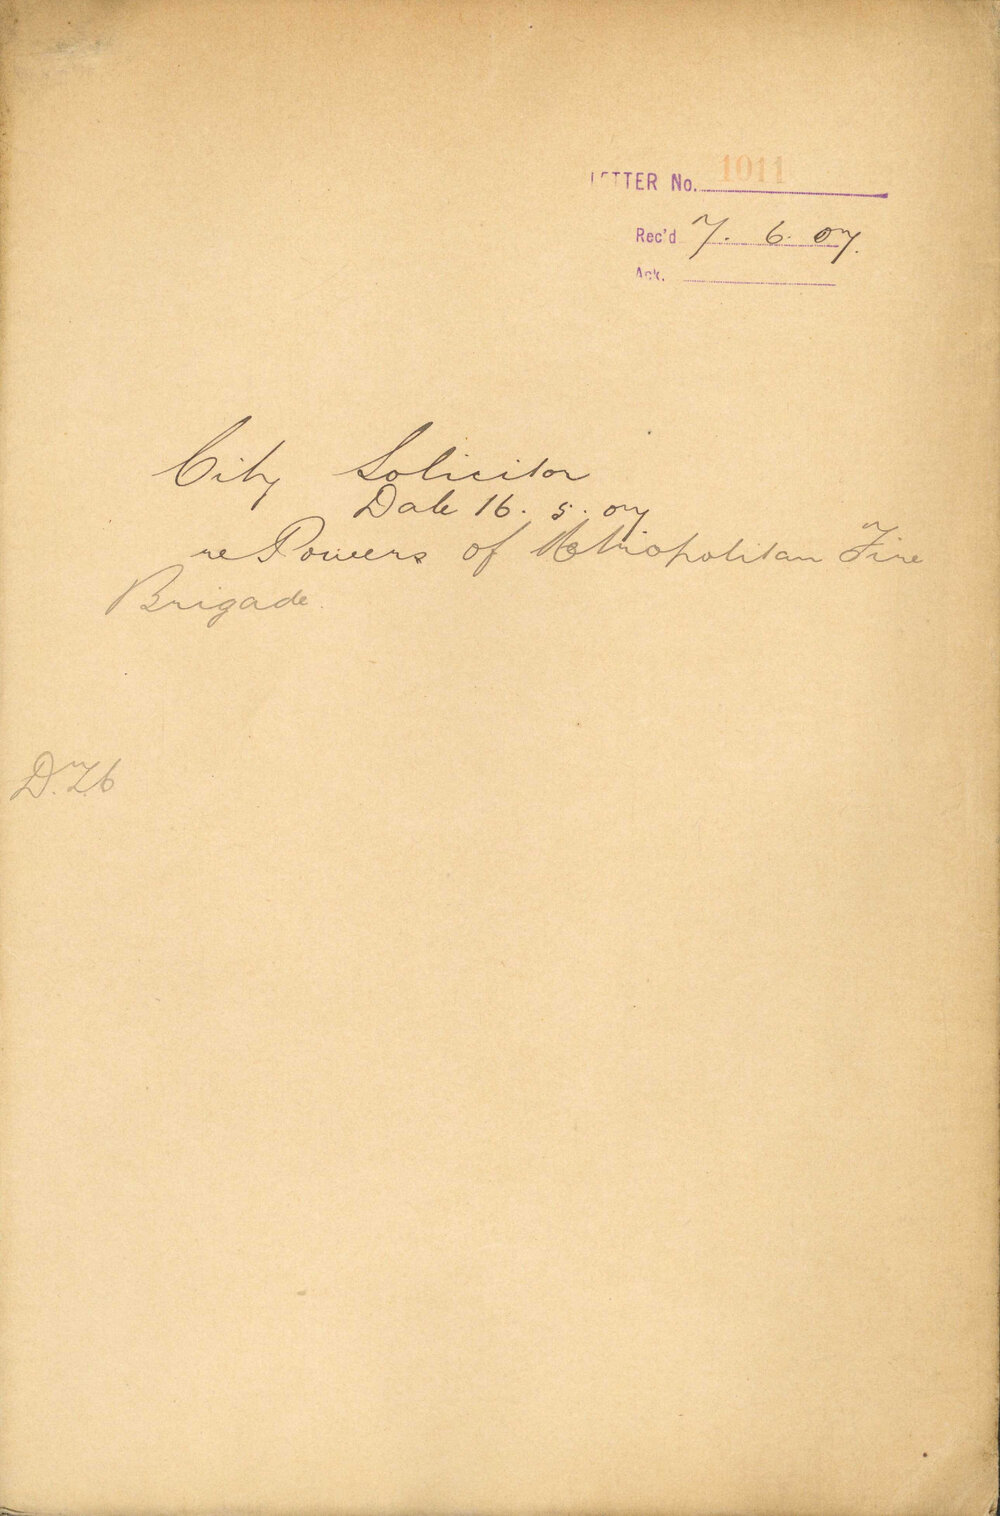 LETTER No. 1011
Rec'd 7. 6. 07.
Ack.
City Solicitor
Date 16. 5. 07
re Powers of Metropolitan Fire
Brigade.